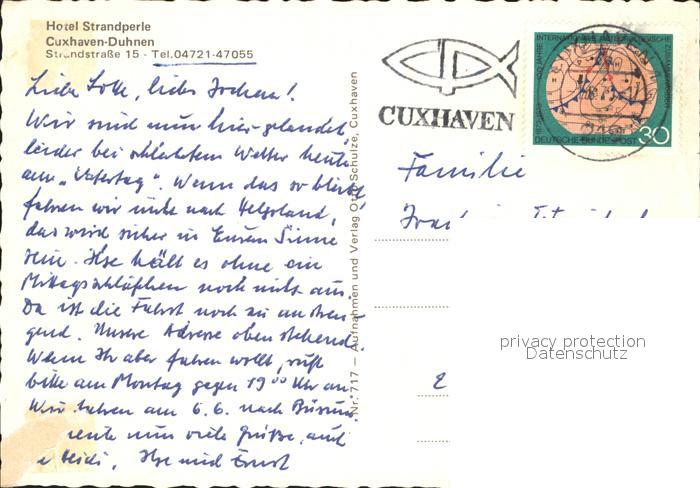 Hotel Strandperle
Cuxhaven-Duhnen
Strandstraße 15 - Tel.04721-47055
Liebe Lotte, lieber Jochen!
Wir sind nun hier gelandet,
leider bei schlechtem Wetter heute
am „Vatertag". Wenn das so bleibt
fahren wir nicht nach Helgoland,
das wird sicher in Eurem Sinne
sein. Ilse hält es ohne ein
Mittagsschläfchen noch nicht aus.
Da ist die Fahrt noch zu anstren-
gend. Unsere Adresse obenstehend.
Wenn Ihr aber fahren wollt, ruft
bitte am Montag gegen 19⁰⁰ Uhr an
Wir fahren am 6.6. nach Büsum
nun viele Grüße, auch
Heidi, Ilse und Ernst
Nr. 717 — Aufnahmen und Verlag Otto Schulze, Cuxhaven
CUXHAVEN
100 JAHRE INTERNATIONALE METEOROLOGISCHE ZUSAMMENARBEIT
1873-1973
DEUTSCHE BUNDESPOST 30
Familie
privacy protection
Datenschutz